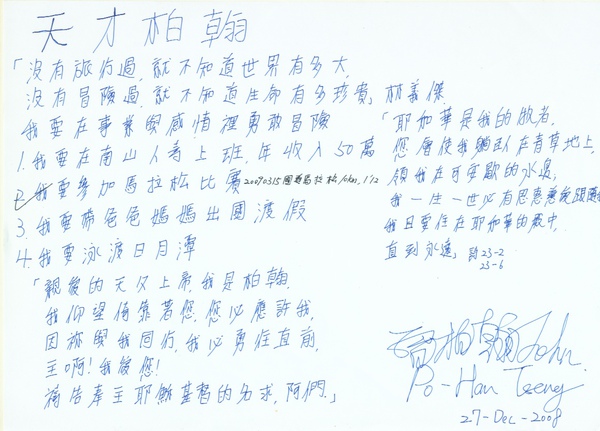 天才柏翰
「沒有旅行過,就不知道世界有多大,
沒有冒險過,就不知道生命有多珍貴」林義傑
我要在事業與感情裡勇敢冒險
1. 我要在南山人壽上班,年收入50萬
2. 我要參加馬拉松比賽 20090315國道馬拉松
3. 我要帶爸爸媽媽出國渡假
4. 我要泳渡日月潭
「親愛的天父上帝,我是柏翰,
我仰望倚靠著您,您必應許我,
因祢與我同行,我必勇往直前,
主啊!我愛您!
禱告奉主耶穌基督的名求,阿們」
「耶和華是我的牧者,
您會使我躺臥在青草地上,
領我在可安歇的水邊,
我一生一世必有恩惠慈愛跟隨我
我且要住在耶和華的殿中,
直到永遠」詩23-2
23-6
曾柏翰 John.
Po-Han Tseng
27-Dec-2008